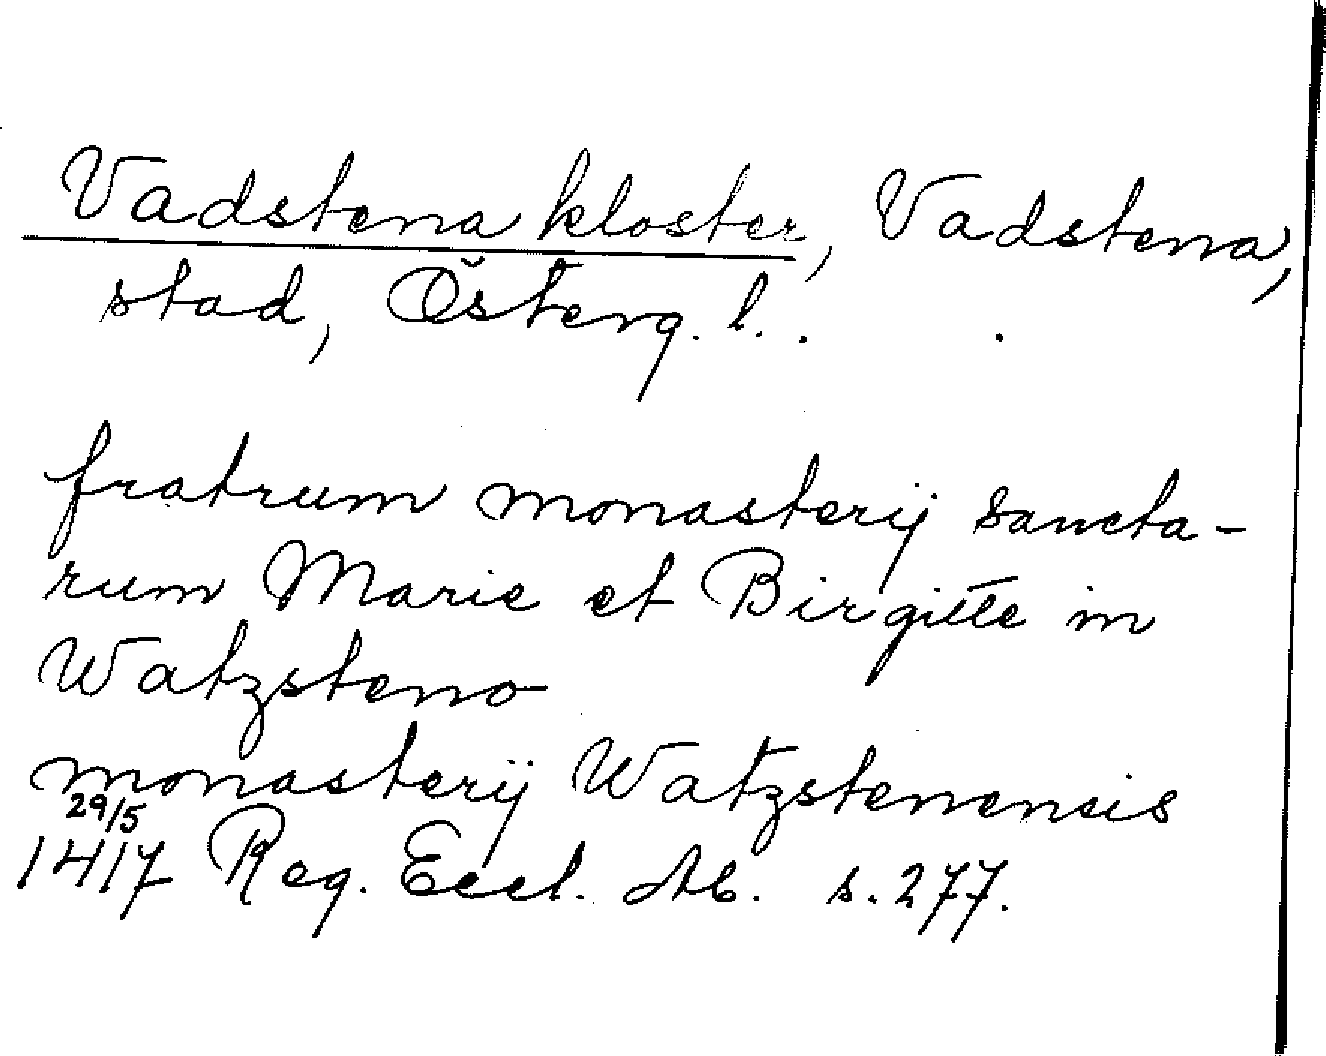 Vadstena kloster, Vadstena,
stad, Österg. l.
fratrum monasterij sancta-
rum Marie et Birgitte in
Watzsteno
monasterij Watzstenensis
29/5
1417 Reg. Eccl. Ab. s. 277.